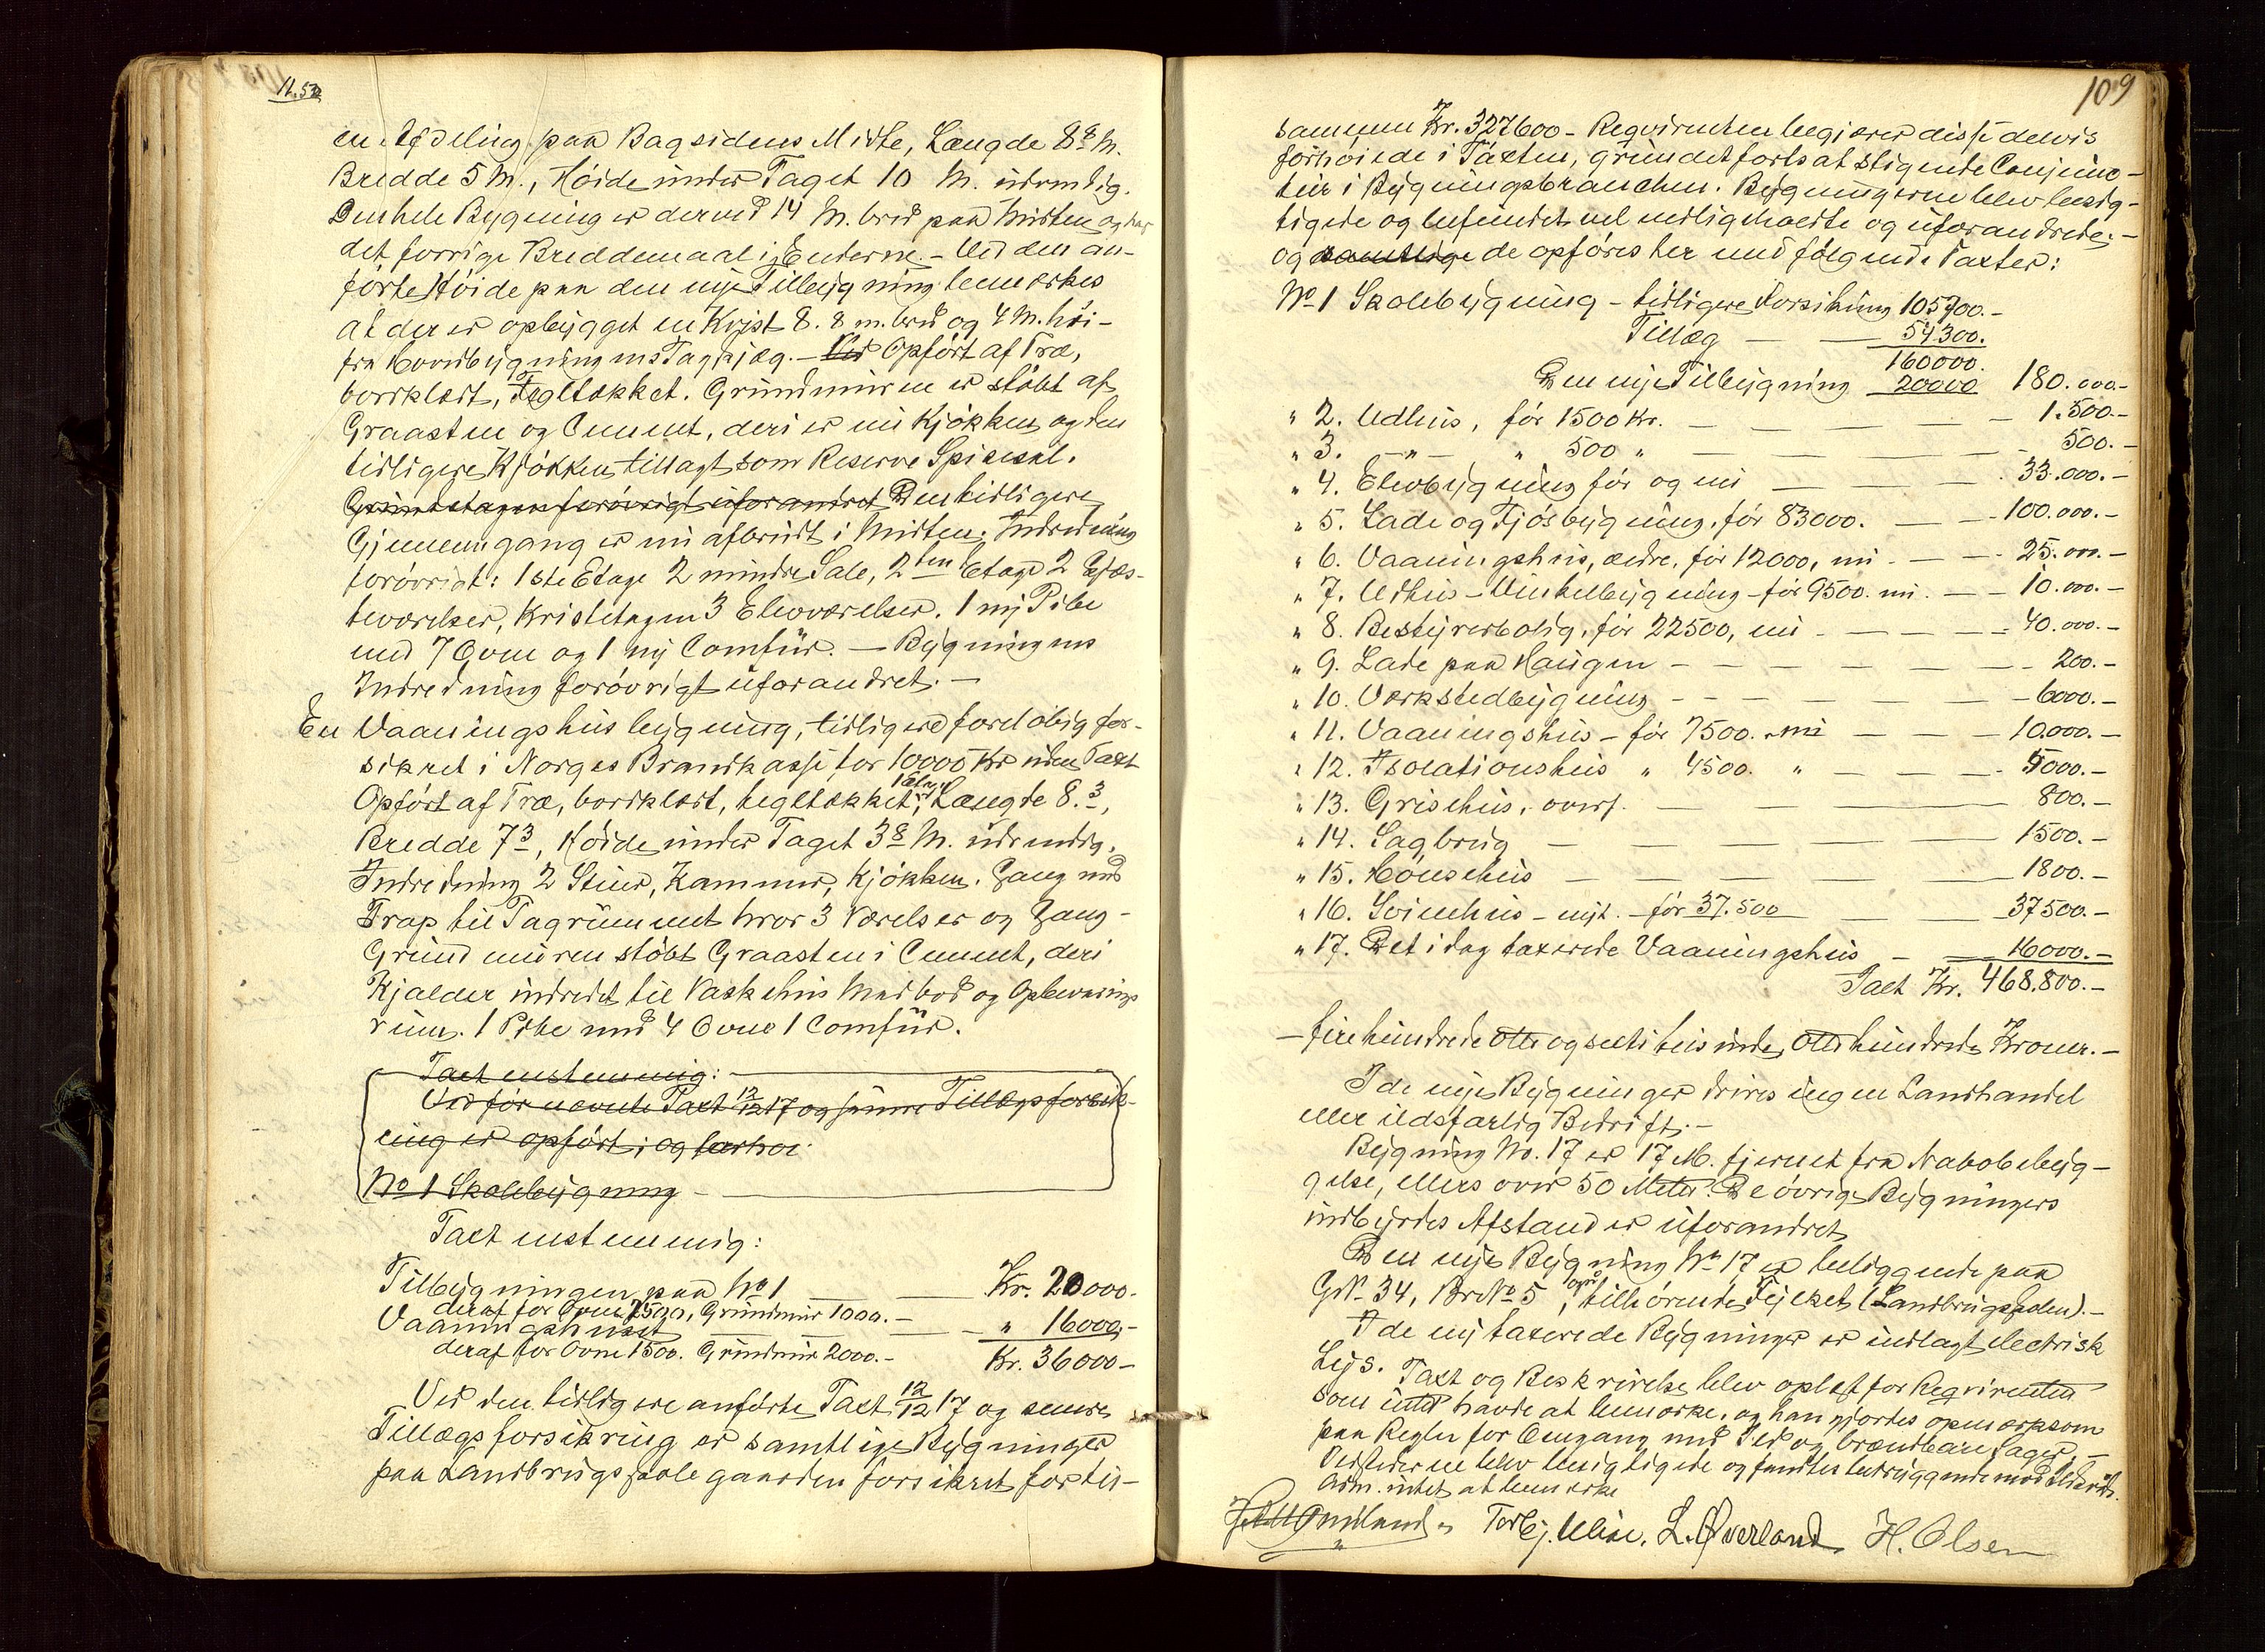 en Afdeling paa Bagsidens Midte, Længde 8.8 M.
Bredde 5 M., Høide under Taget 10 M. udvendig.
Den hele Bygning er derved 14 M. bred paa Midten og har
det forrige Breddemaal i Enderne. – Ved den an-
førte Høide paa den nye Tilbygning bemærkes
at der er opbygget en Kvist 8.8 m. bred og 4 M. høi –
fra Hovedbygningens Tagskjæg. – Ved Opført af Træ,
bordklædt, Tegltækket. Grundmuren er støbt af
Graasten og Cement, deri er nu Kjøkken og den
tidligere Kjøkken tillagt som Reserve Spisesal.
Grundetagen forøvrigt uforandret Den tidligere
Gjennemgang er nu afbrudt i Midten. Indredning
forøvrigt: 1ste Etage 2 mindre Sale, 2den Etage 2 Gjæs-
teværelser, Kvistetagen 3 Elevværelser. 1 ny Pibe
med 7 Ovne og 1 ny Comfur. – Bygningens
Indredning forøvrigt uforandret. –
En Vaaningshusbygning, tidligere foreløbig for-
sikret i Norges Brandkasse for 10000 Kr uden Taxt
Opført af Træ, bordklædt, tegltækket, 1 Etage, Længde 8.3,
Bredde 7.3, Høide under Taget 3.8 M. udvendig.
Indredning 2 Stuer, Kammer, Kjøkken. Gang med
Trap til Tagrummet hvor 3 Værelser og Gang –
Grundmuren støbt Graasten i Cement, deri
Kjælder indredet til Vaskehus Madbod og Opbevarings
rum. 1 Pibe med 4 Ovne 1 Comfur.
Taxt enstemmig:
Ved før nævnte Taxt 12/12 17 og senere Tillægsforsik-
ring er opført; og forhøi
No 1 Skolebygning –
Taxt enstemmig:
Tilbygningen paa No 1 — — Kr. 20000.
deraf for Ovne 2500, Grundmur 1000. –
Vaaningshuset — — " 16000, –
deraf for Ovne 1500. Grundmur 2000. –
Kr. 36000 –
Ved den tidligere anførte Taxt 12/12 17 og senere
Tillægsforsikring er samtlige Bygninger
paa Landbrugsskolegaarden forsikret for til-
109
sammen Kr. 327600 – Reqvirenten begjærer disse delvis
forhøiede i Taxten, grundet fortsat stigende Conjunc-
tur i Bygningsbranchen. Bygningerne blev besig-
tigede og befundet vel vedligeholdte og uforandrede; –
og samtlige de opføres her med følgende Taxter:
No 1 Skolebygning – tidligere Forsikring 105700. –
Tillæg — — 54300.
160000.
Den nye Tilbygning 20000 180.000 –
" 2. Udhus, før 1500 Kr. — — — 1.500. –
" 3. – " – " 500 " — — — 500. –
" 4. Elevbygning før og nu — — 33.000. –
" 5. Lade og Fjøsbygning, før 83000. — 100.000. –
" 6. Vaaningshus, ældre, før 12000, nu – — 25.000. –
" 7. Udhus – Vinkelbygning – før 9500. nu. — 10.000. –
" 8. Bestyrerbolig, før 22500, nu – — — 40.000. –
" 9. Lade paa Haugen – — — — 200. –
" 10. Værkstedbygning – — — — 6000. –
" 11. Vaaningshus – før 7500. nu — — 10.000. –
" 12. Isolationshus " 4500. " — — 5000. –
" 13. Grisehus, overf. — — 800. –
" 14. Sagbrug — — — — 1500. –
" 15. Hønsehus — — — 1800. –
" 16. Svinehus – nyt. – før 37.500 — — 37500. –
" 17. Det i dag taxerede Vaaningshus – 16000. –
Taxt Kr. 468.800. –
– firehundrede otte og seksti tusinde, otte hundrede Kroner. –
I de nye Bygninger drives ingen Landhandel
eller ildsfarlig Bedrift. –
Bygning No. 17 er 17 M. fjernet fra Nabobebyg-
gelse, ellers over 50 Meter. De øvrige Bygningers
indbyrdes Afstand er uforandret
Den nye Bygning No 17 er beliggende paa
GNr. 34, BrNo 5, tilhørende Fylket (Landbrugsskolen). –
I de ny taxerede Bygninger er indlagt electrisk
Lys. Taxt og Beskrivelse blev oplæst for Reqvirenten
som intet havde at bemærke, og han gjordes opmærksom
paa Regler for Omgang med Ild og brændbare Sager. –
Ildstederne blev besigtigede og fandtes betryggende mod Ildsvaade.
Adm. intet at bemærke
Torbj. L. Øverland H. Olsen